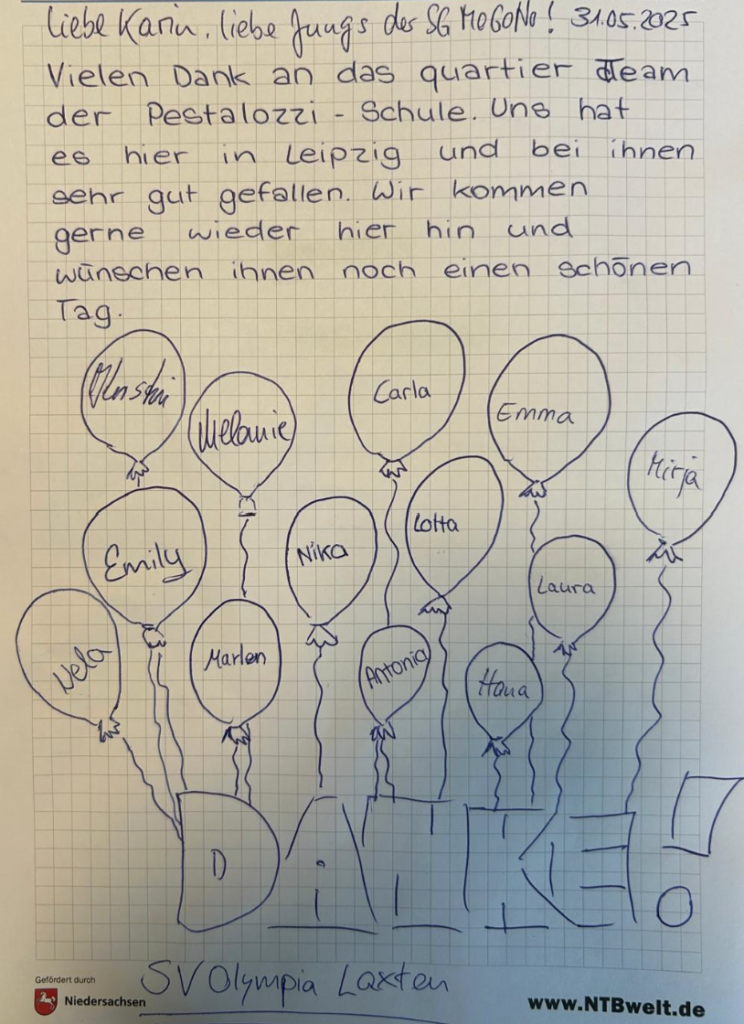 Liebe Karin, liebe Jungs der SG MoGoNo! 31.05.2025
Vielen Dank an das quartier Team
der Pestalozzi - Schule. Uns hat
es hier in Leipzig und bei ihnen
sehr gut gefallen. Wir kommen
gerne wieder hier hin und
wünschen ihnen noch einen schönen
Tag.
Carla
Emma
Melanie
Mirja
Lotta
Emily
Nika
Laura
Nela
Marlen
Antonia
Hana
DANKE!
SV Olympia Laxten
Gefördert durch
Niedersachsen
www.NTBwelt.de